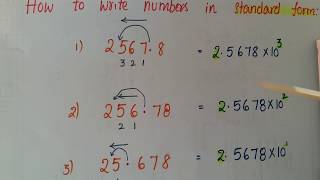 How to write numbers in standard form:
1) 2567.8 = 2.5678×10³
3 2 1
2) 256.78 = 2.5678×10²
2 1
3) 25.678 = 2.5678×10¹
1